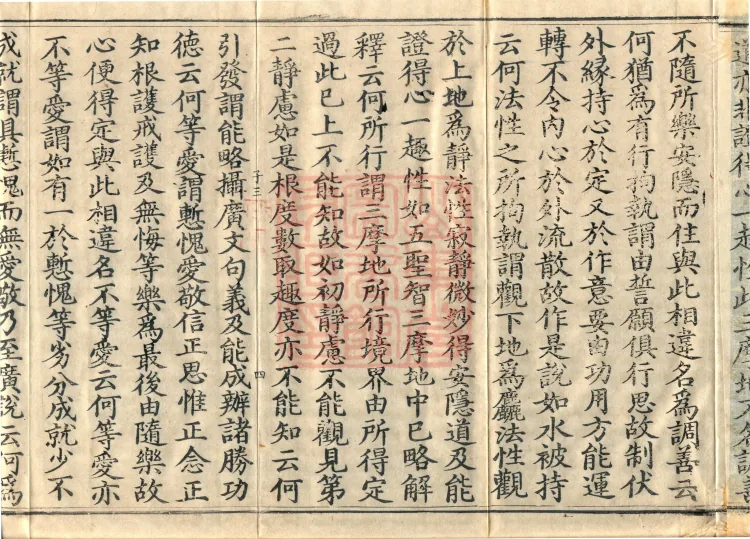 不隨所樂安隱而住與此相違名爲調善云
何猶爲有行拘執謂由誓願俱行思故制伏
外緣持心於定又於作意要由功用方能運
轉不令內心於外流散故作是說如水被持
云何法性之所拘執謂觀下地爲麤法性觀
於上地爲靜法性寂靜微妙得安隱道及能
證得心一趣性如五聖智三摩地中已略解
釋云何所行謂三摩地所行境界由所得定
過此已上不能知故如初靜慮不能觀見第
二靜慮如是根度數取趣度亦不能知云何
子三 四
引發謂能略攝廣文句義及能成辦諸勝功
德云何等愛謂慙愧愛敬信正思惟正念正
知根護戒護及無悔等樂爲最後由隨樂故
心便得定與此相違名不等愛云何等愛亦
不等愛謂如有一於慙愧等劣分成就少不
成就謂具慙愧而無愛敬乃至廣說云何爲